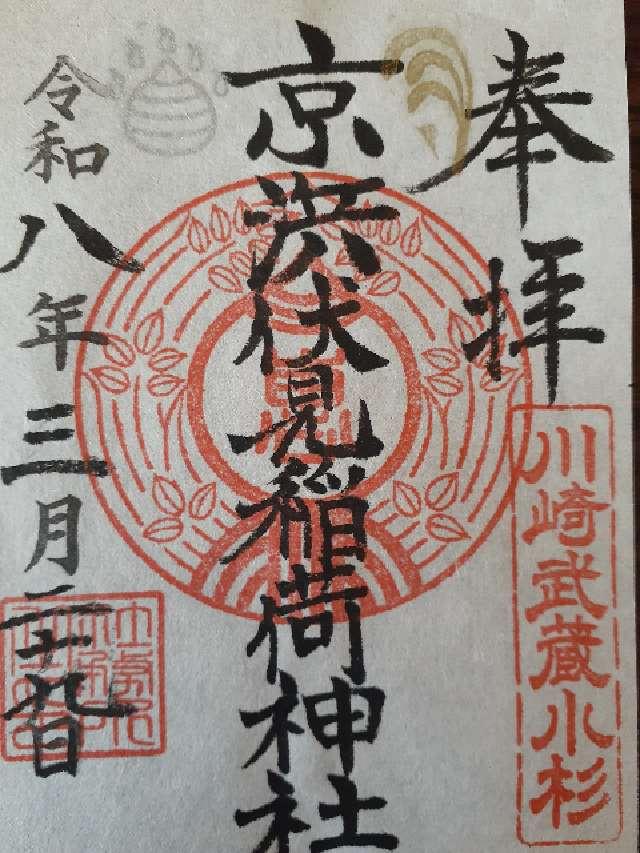 奉拝
川崎武蔵小杉
京浜伏見稲荷神社
令和八年三月二十九日